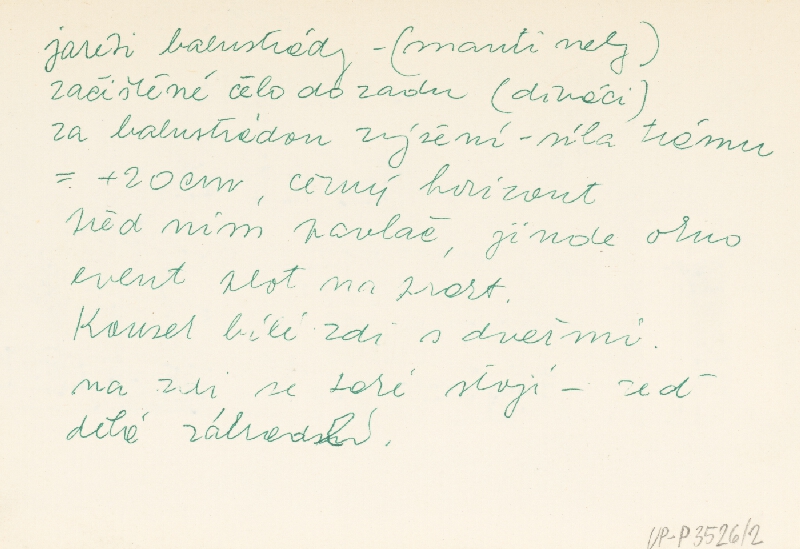 jsou balustrády - (mantinely)
začištěné čelo dozadu (diváci)
za balustrádou zvýšení - síla trámu
= +20cm, černý horizont
před ním pavlač, jinde okno
event plot na
Kousek bílé zdi s dveřmi.
na zdi se také stojí - zeď
dělá záhradní.
UP-P3526/2